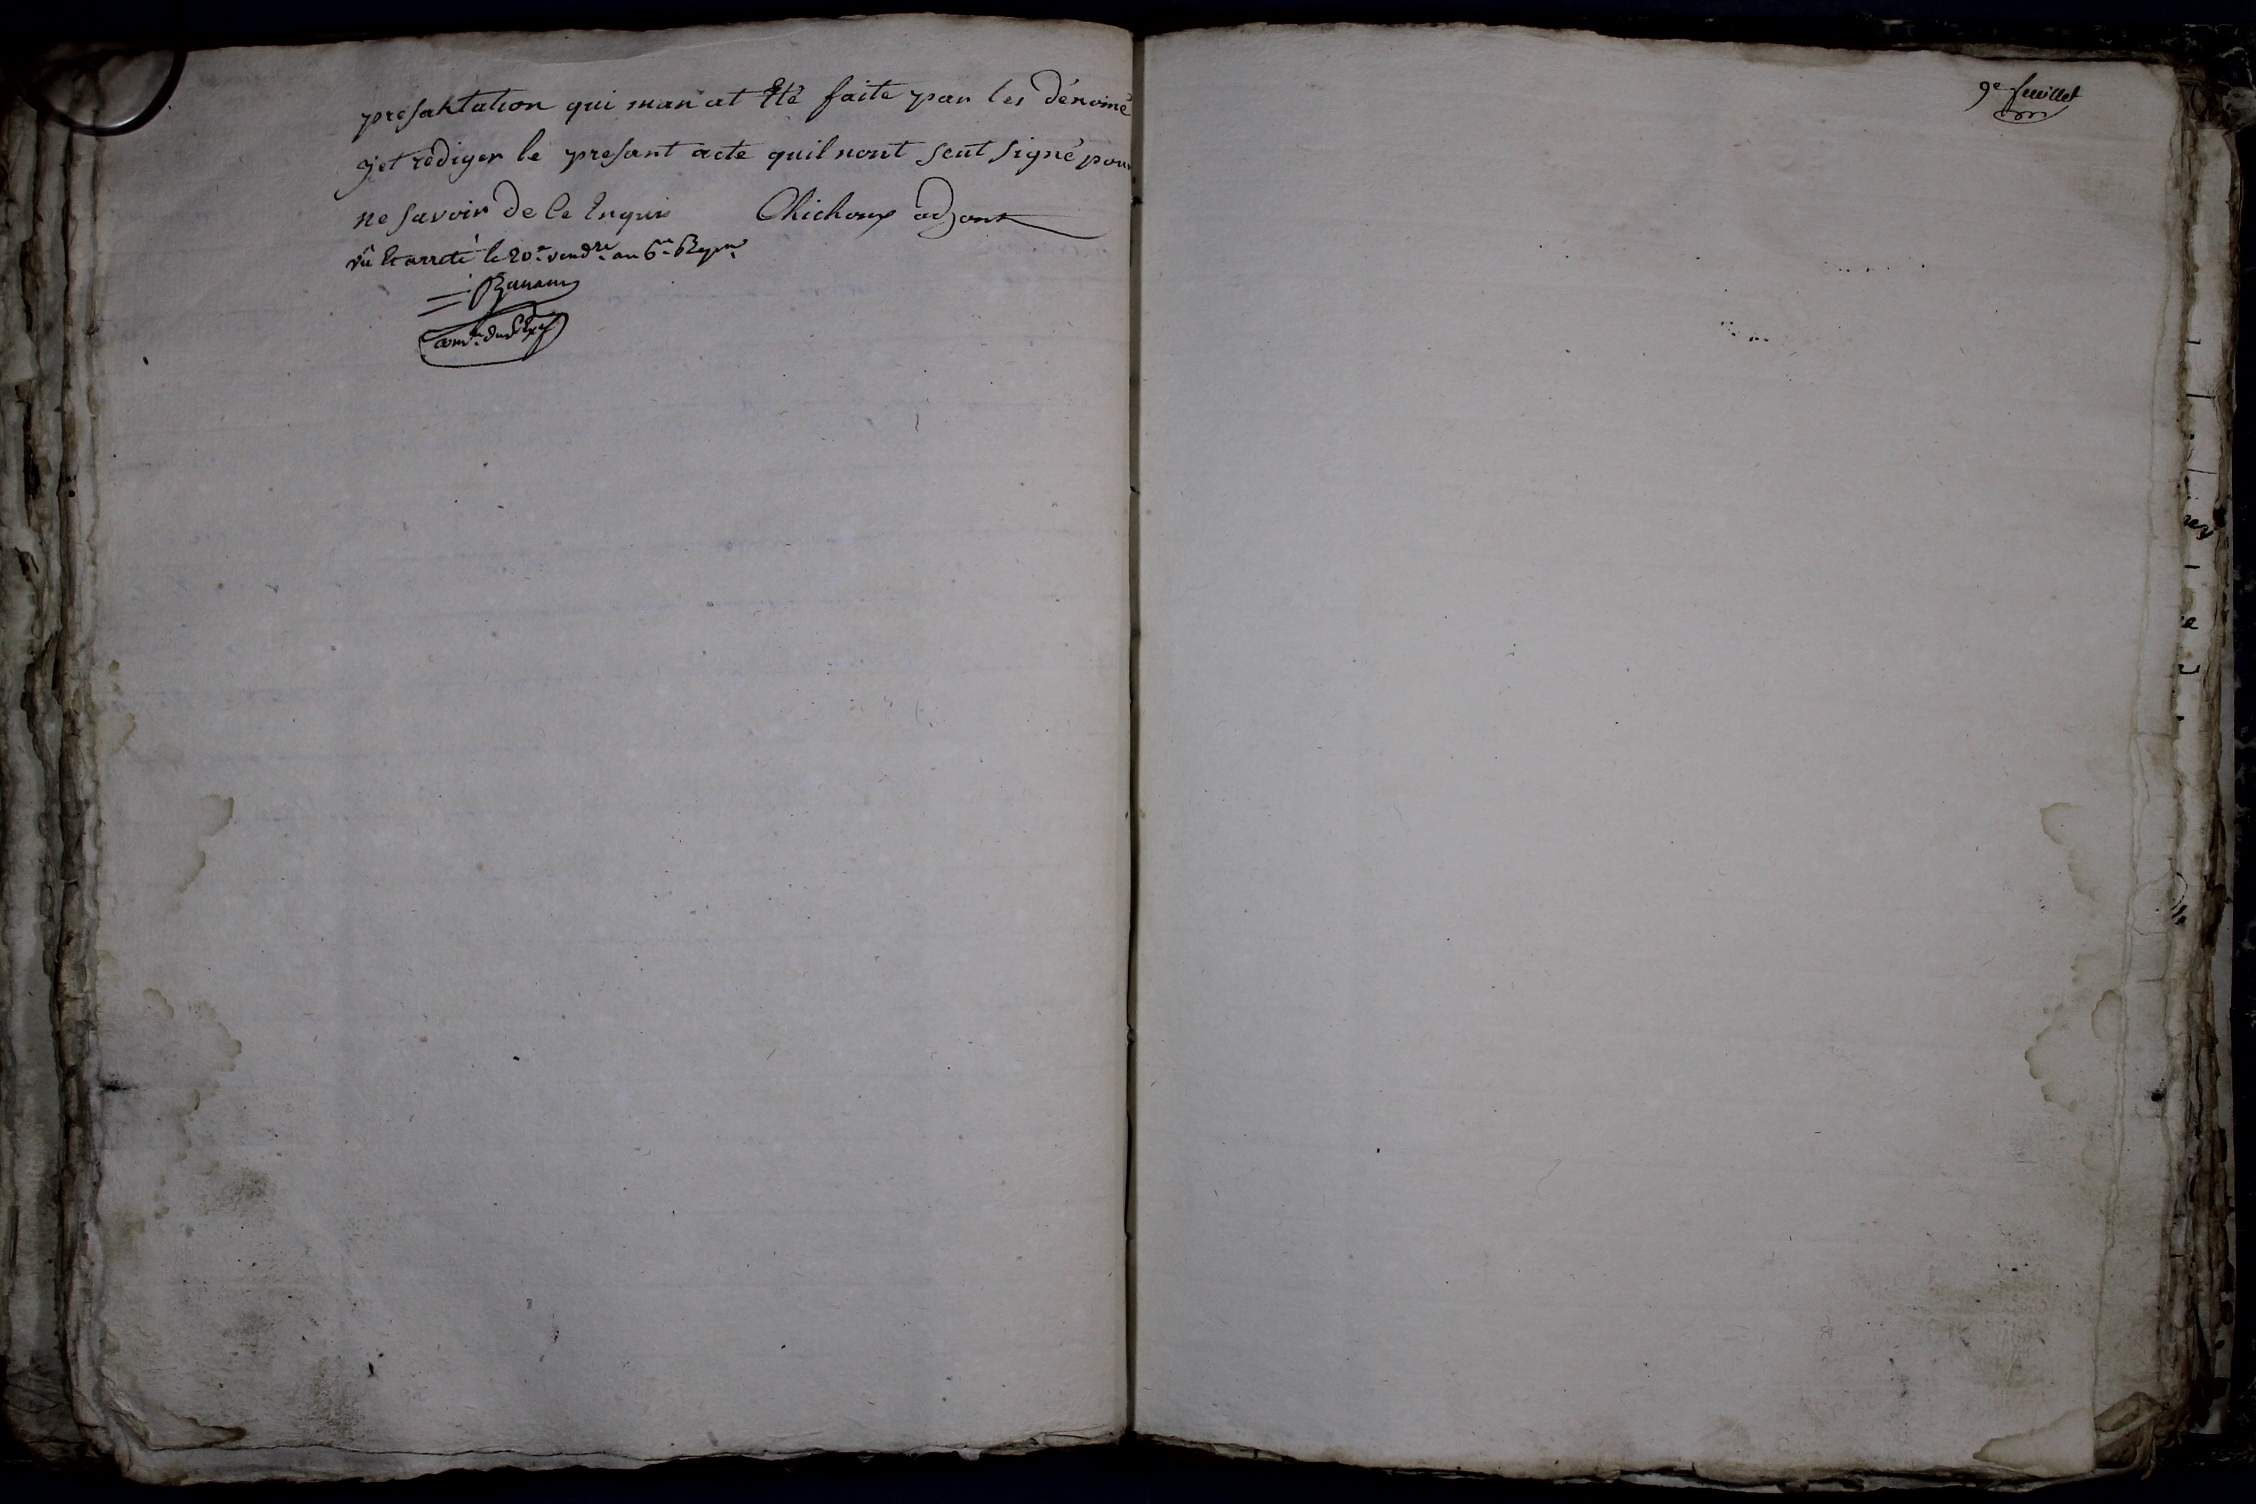 presantation qui man at Eté faite par les dénomé
jet rediger le presant acte quil nont seut signé pour
ne savoir de ce Enquis Chichoux adjont
vû Et arreté le 20e vendre an 6e
9e feuillet